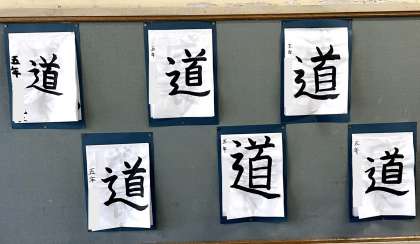 道
五年
道
五年
道
五年
道
五年
道
五年
道
五年